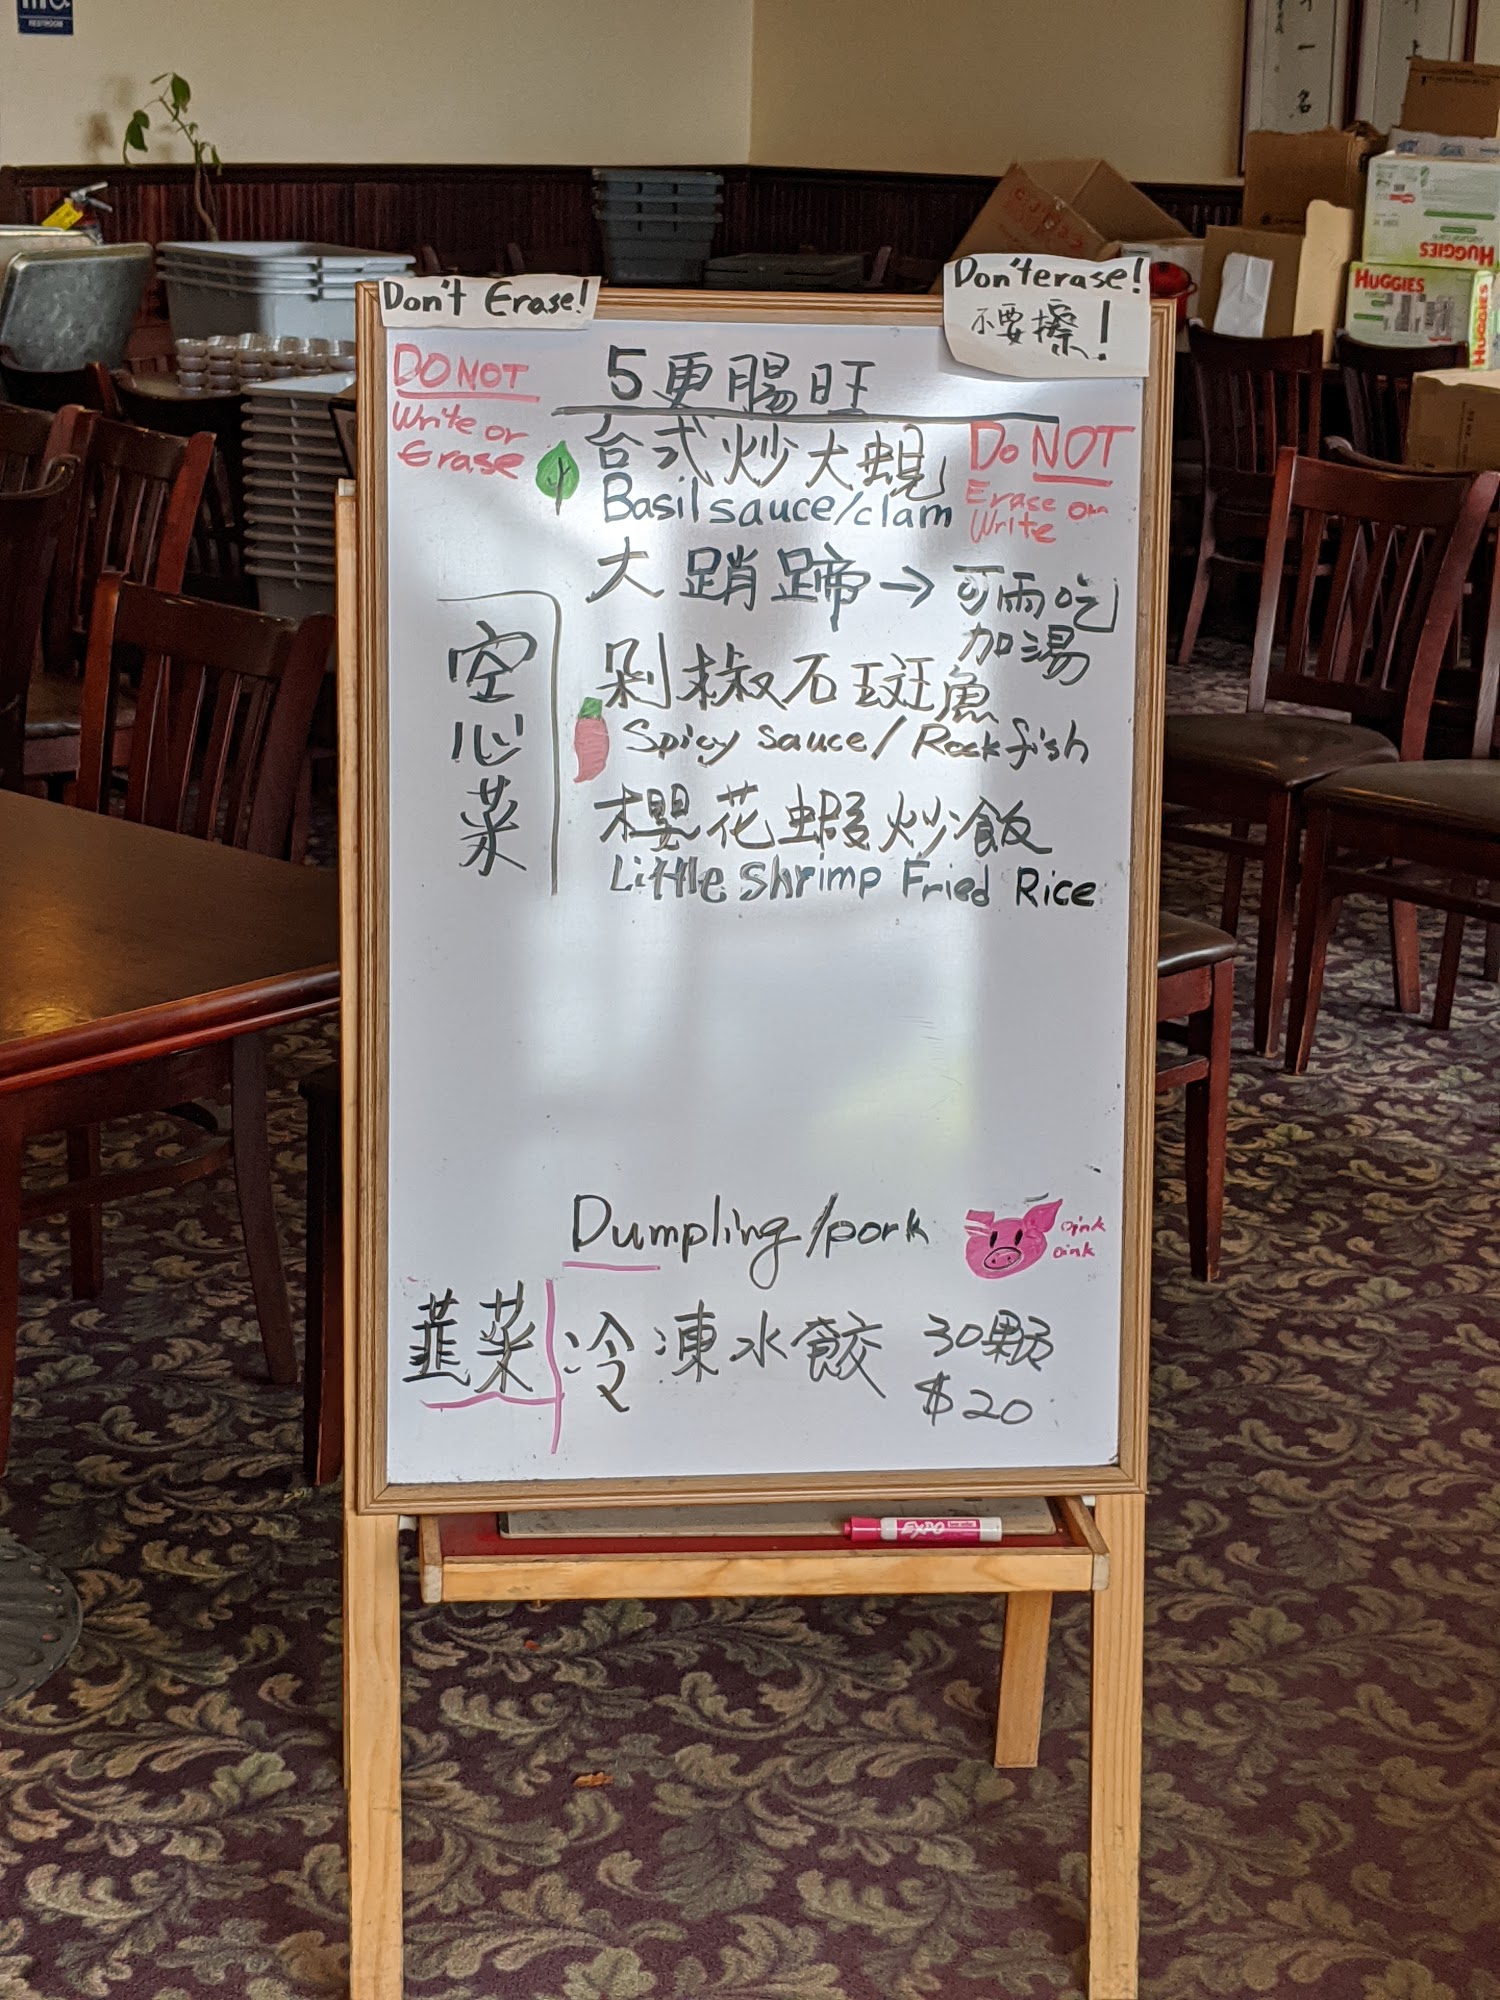 RESTROOM
一
名
上
HUGGIES
HUGGIES
HUGGIES
Don't Erase!
Don't erase!
不要擦!
DO NOT
Write or
Erase
5更腸旺
台式炒大蜆
Basil sauce/clam
Do NOT
Erase or
Write
大蹄 → 可兩吃
加湯
空心菜
剁椒石斑魚
Spicy sauce/Rockfish
櫻花蝦炒飯
Little Shrimp Fried Rice
Dumpling/pork
oink
oink
韮菜
冷凍水餃 30顆
$20
EXPO